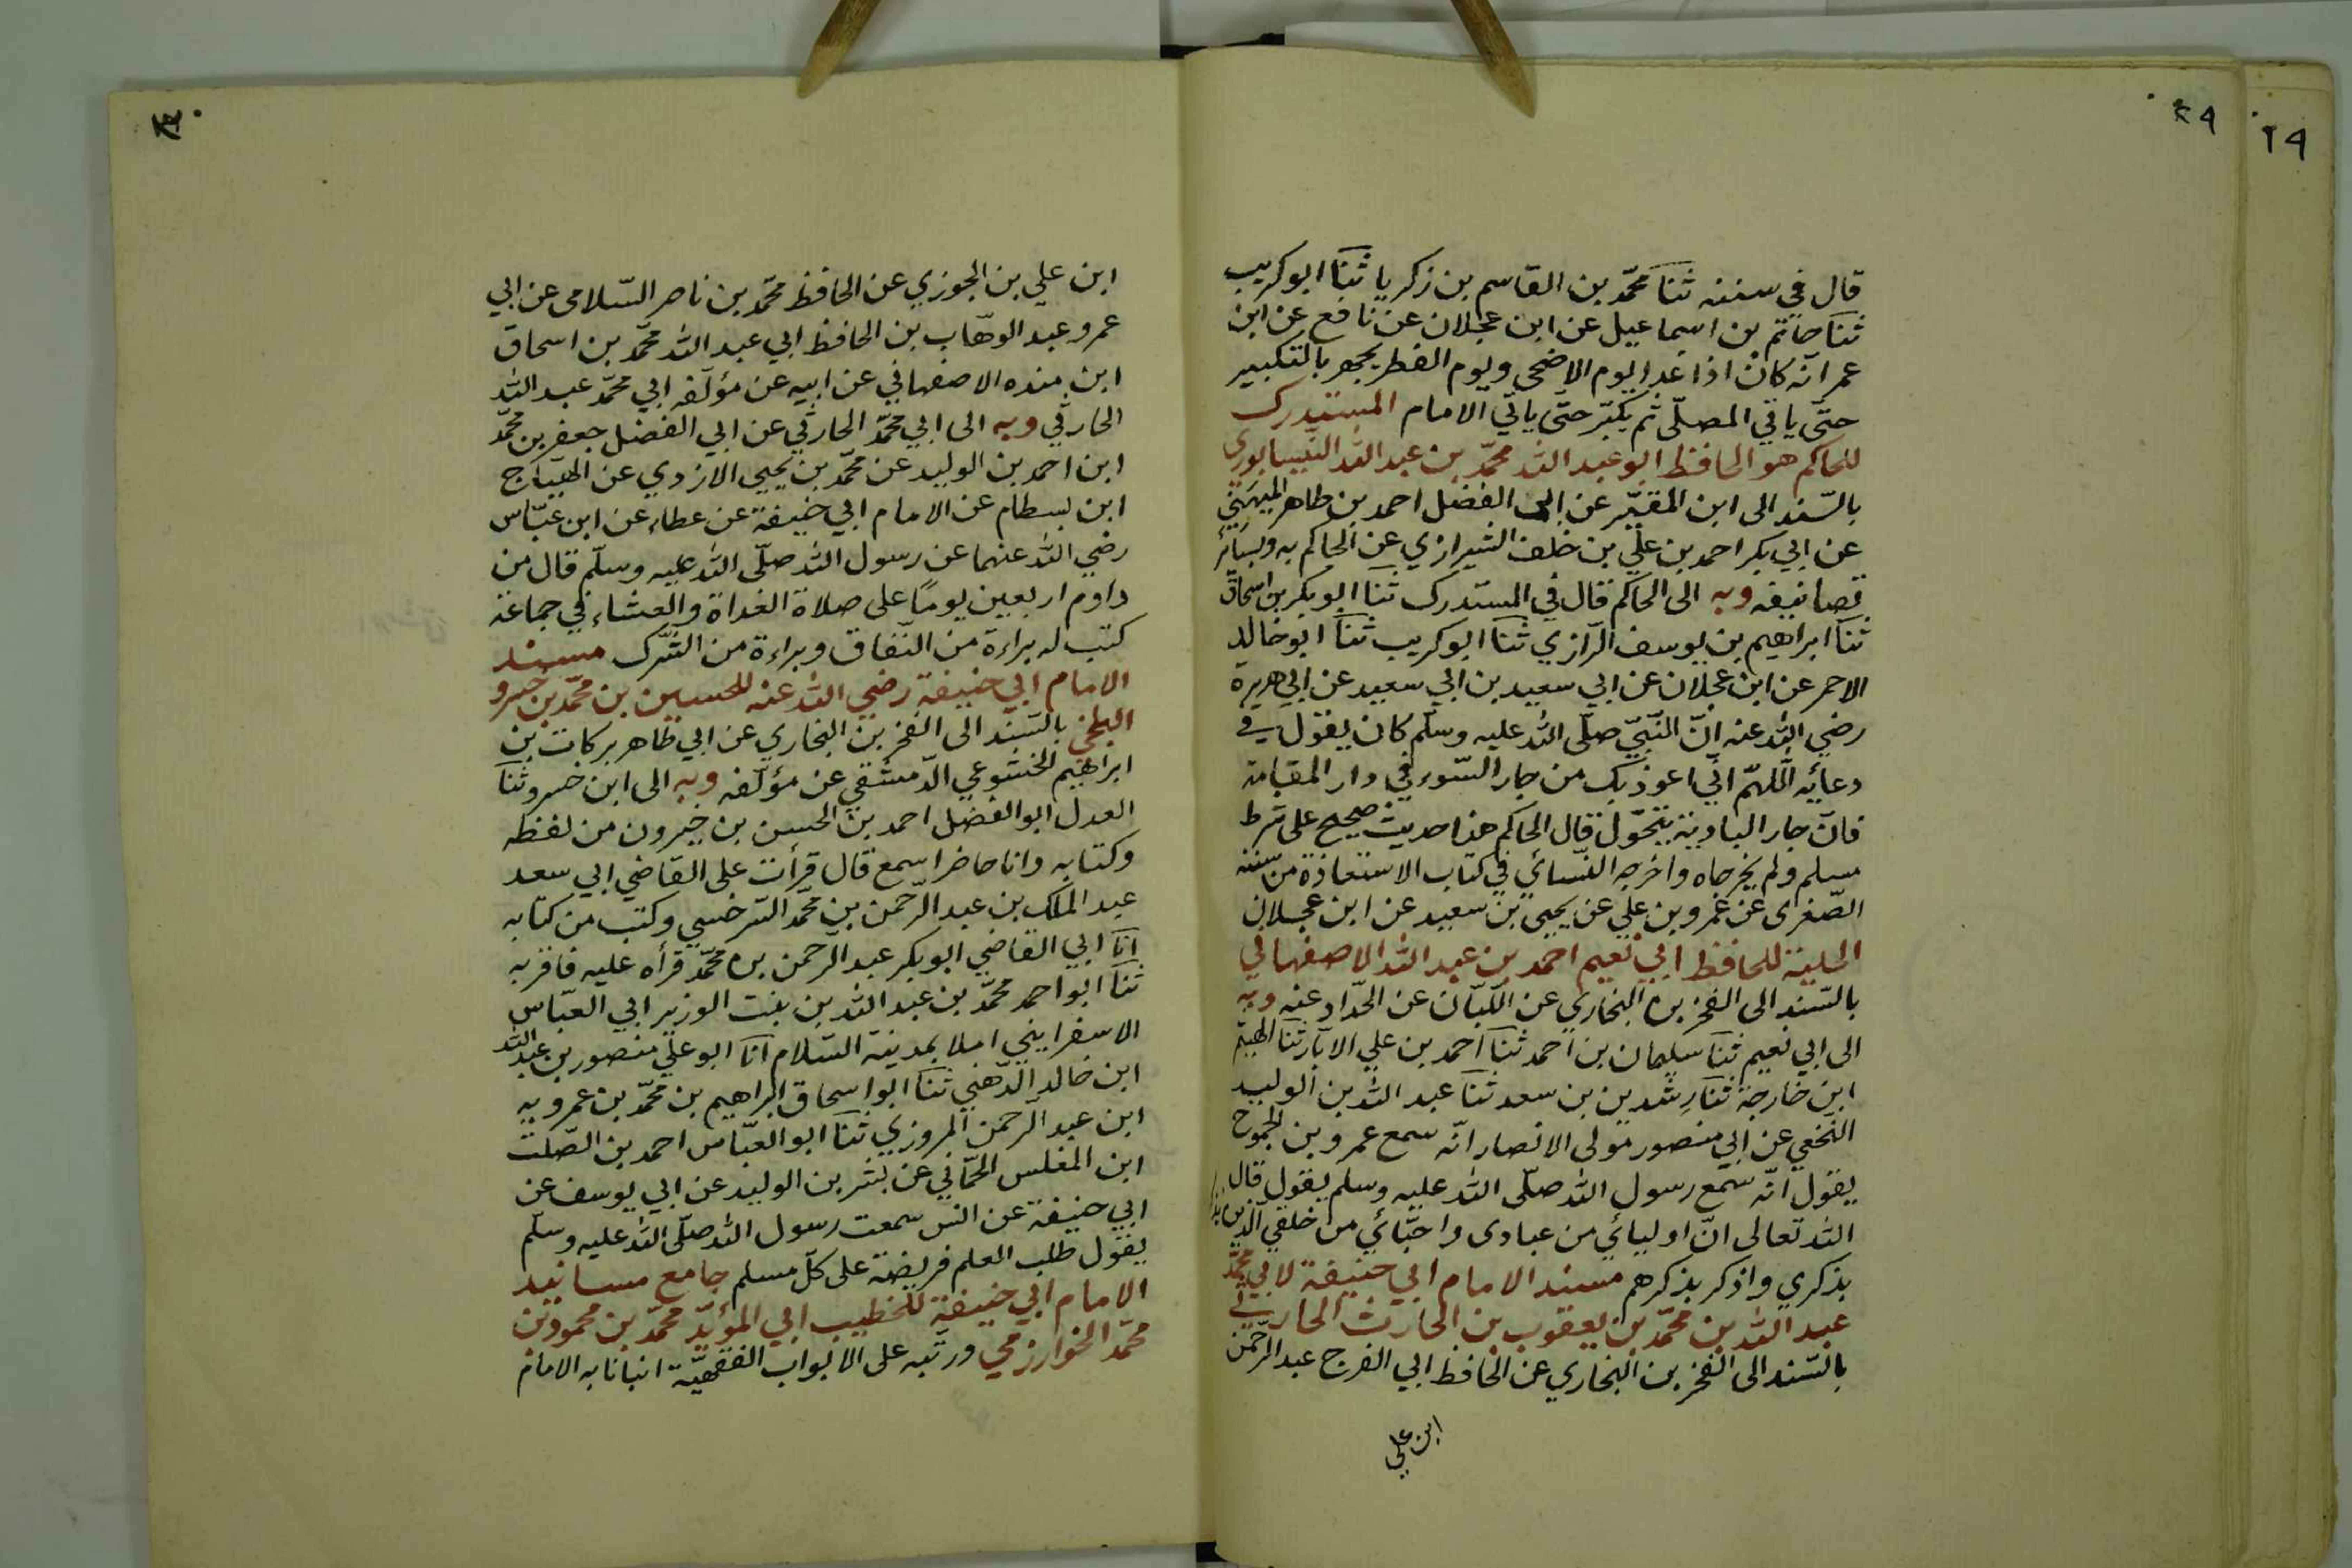 ٢٩
٤٩
قال في سننه ثنا محمّد بن القاسم بن زكريا ثنا ابو كريب
ثنا حاتم بن اسماعيل عن ابن عجلان عن نافع عن ابن
عمر انّه كان اذا غدا يوم الاضحى ويوم الفطر يجهر بالتكبير
حتّى ياتي المصلّى ثم يكبّر حتّى ياتي الامام المستدرك
للحاكم هو الحافظ ابو عبد الله محمّد بن عبد الله النّيسابوري
بالسّند الى ابن المقيّر عن ابي الفضل احمد بن طاهر الميهني
عن ابي بكر احمد بن علّي بن خلف الشيرازي عن الحاكم به وبسائر
تصانيفه وبه الى الحاكم قال في المستدرك ثنا ابو بكر بن اسحاق
ثنا ابراهيم بن يوسف الرّازي ثنا ابو كريب ثنا ابو خالد
الاحمر عن ابن عجلان عن ابي سعيد بن ابي سعيد عن ابي هريرة
رضي الله عنه انّ النّبيّ صلّى الله عليه وسلّم كان يقول في
دعائه اللّهمّ انّي اعوذ بك من جار السّوء في دار المقامة
فانّ جار البادية يتحوّل قال الحاكم هذا حديث صحيح على شرط
مسلم ولم يخرجاه واخرجه النّسائي في كتاب الاستعاذة من سننه
الصّغرى عن عمرو بن علي عن يحيى بن سعيد عن ابن عجلان
الحلية للحافظ ابي نعيم احمد بن عبد الله الاصفهاني
بالسّند الى الفخر بن البخاري عن اللّبّان عن الحدّاد عنه وبه
الى ابي نعيم ثنا سليمان بن احمد ثنا احمد بن علي الابّار ثنا الهيثم
ابن خارجة ثنا رشدين بن سعد ثنا عبد الله بن الوليد
النّخعي عن ابي منصور مولى الانصار انّه سمع عمرو بن الجموح
يقول انّه سمع رسول الله صلّى الله عليه وسلم يقول قال
الله تعالى انّ اوليائي من عبادى واحبّائي من خلقي الّذين
بذكري واذكر بذكرهم مسند الامام ابي حنيفة لابي محمّد
عبد الله بن محمّد بن يعقوب بن الحارث الحارثي
بالسّند الى الفخر بن البخاري عن الحافظ ابي الفرج عبد الرّحمن
ابن علي
٣٠
ابن علي بن الجوزي عن الحافظ محمّد بن ناصر السّلامى عن ابي
عمرو عبد الوهّاب بن الحافظ ابي عبد الله محمّد بن اسحاق
ابن منده الاصفهاني عن ابيه عن مؤلّفه ابي محمّد عبد الله
الحارثي وبه الى ابي محمّد الحارثي عن ابي الفضل جعفر بن محمّد
ابن احمد بن الوليد عن محمّد بن يحيى الازدي عن الهيّاج
ابن بسطام عن الامام ابي حنيفة عن عطاء عن ابن عبّاس
رضي الله عنهما عن رسول الله صلّى الله عليه وسلّم قال من
داوم اربعين يومًا على صلاة الغداة والعشاء في جماعة
كتب له براءة من النّفاق وبراءة من الشّرك مسند
الامام ابي حنيفة رضي الله عنه للحسين بن محمّد بن خسرو
البلخي بالسّند الى الفخر بن البخاري عن ابي طاهر بركات بن
ابراهيم الخشوعي الدّمشقي عن مؤلّفه وبه الى ابن خسرو ثنا
العدل ابو الفضل احمد بن الحسن بن خيرون من لفظه
وكتابه وانا حاضر اسمع قال قرأت على القاضي ابي سعد
عبد الملك بن عبد الرّحمن بن محمّد السّرخسي وكتب من كتابه
انا ابي القاضي ابو بكر عبد الرّحمن بن محمّد قرأه عليه فاقرّ به
ثنا ابو احمد محمّد بن عبد الله بن بنت الوزير ابي العبّاس
الاسفرايني املا بمدينة السّلام انا ابو علّي منصور بن عبد الله
ابن خالد الذّهني ثنا ابو اسحاق ابراهيم بن محمّد بن عمرويه
ابن عبد الرّحمن المروزي ثنا ابو العبّاس احمد بن الصّلت
ابن المغلس الحمّاني عن بشر بن الوليد عن ابي يوسف عن
ابي حنيفة عن انس سمعت رسول الله صلّى الله عليه وسلّم
يقول طلب العلم فريضة على كلّ مسلم جامع مسانيد
الامام ابي حنيفة للخطيب ابي المؤيّد محمّد بن محمود بن
محمّد الخوارزمي ورتّبه على الابواب الفقهيّة انبانا به الامام